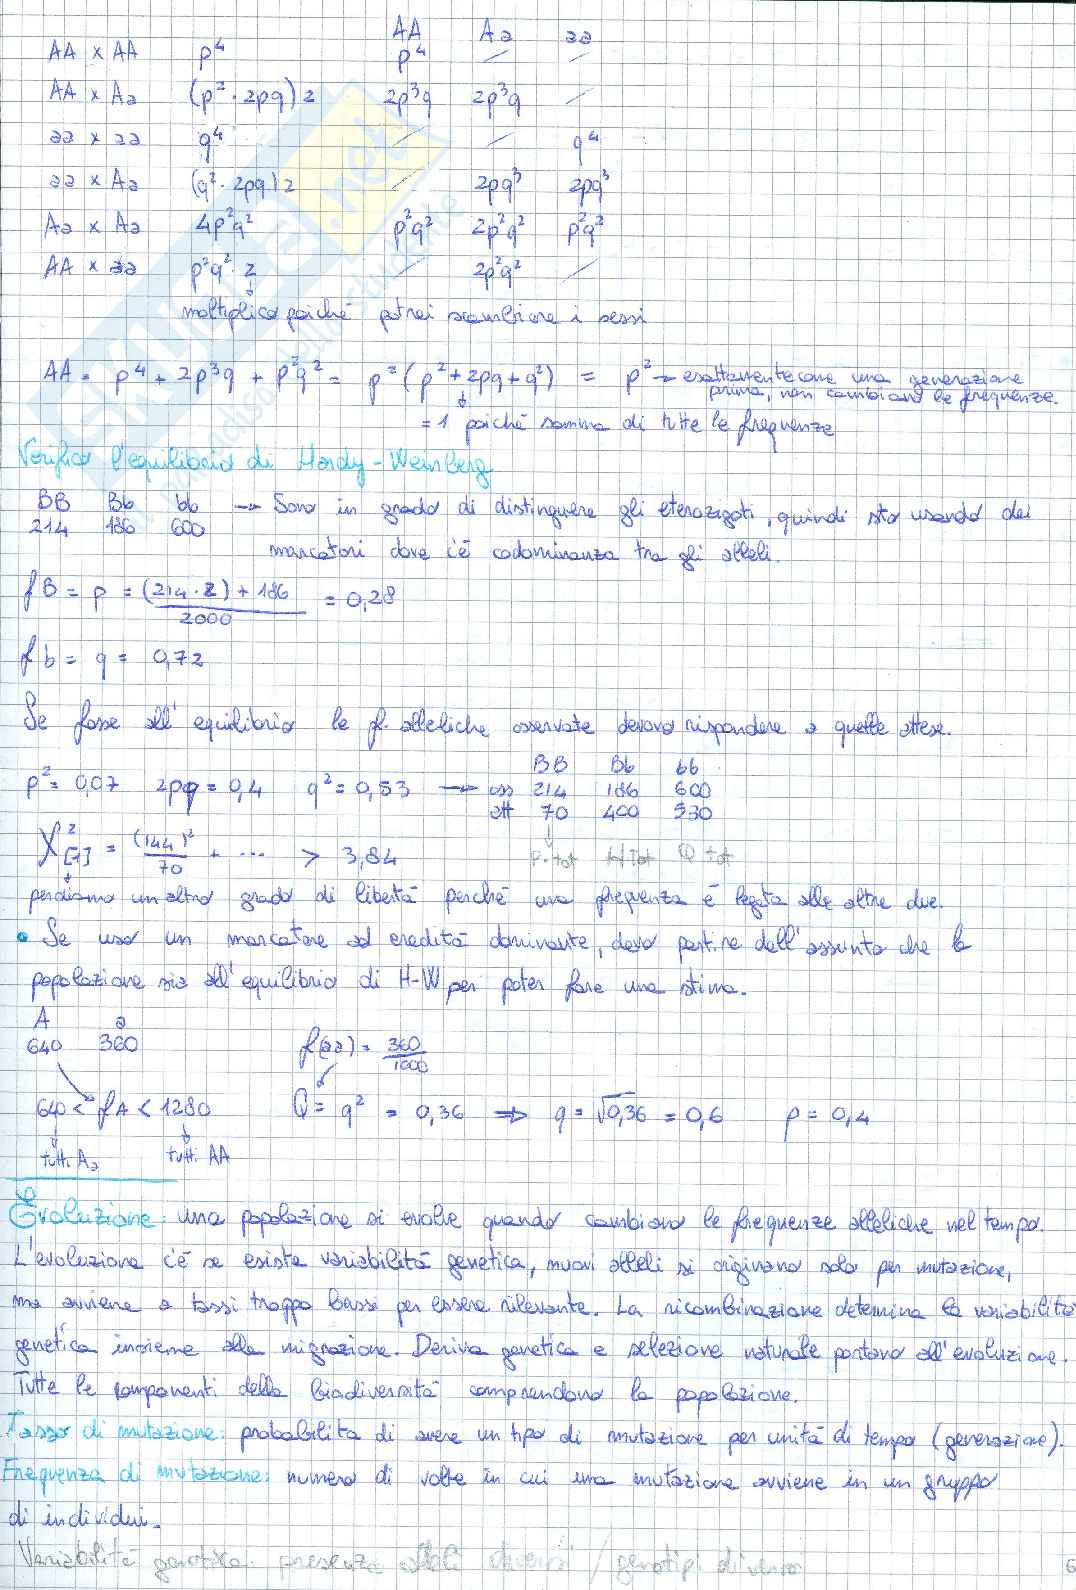 AA Aa aa
AA x AA p⁴ p⁴ / /
AA x Aa (p² · 2pq) 2 2p³q 2p³q /
aa x aa q⁴ / / q⁴
aa x Aa (q² · 2pq) 2 / 2pq³ 2pq³
Aa x Aa 4p²q² p²q² 2p²q² p²q²
AA x aa p²q² · 2 / 2p²q² /
moltiplico poiché potrei scambiare i sessi
AA = p⁴ + 2p³q + p²q² = p² (p² + 2pq + q²) = p² → esattamente come una generazione
prima, non cambiano le frequenze.
= 1 poiché somma di tutte le frequenze
Verifico l'equilibrio di Hardy-Weinberg
BB Bb bb → Sono in grado di distinguere gli eterozigoti, quindi sto usando dei
214 186 600
marcatori dove c'è codominanza tra gli alleli.
fB = p = (214 · 2) + 186 / 2000 = 0,28
fb = q = 0,72
Se fosse all'equilibrio le fr. alleliche osservate devono rispondere a quelle attese.
BB Bb bb
p² = 0,07 2pq = 0,4 q² = 0,53 → oss 214 186 600
att 70 400 530
X²[1] = (144)² / 70 + ... > 3,84 P·tot H·tot Q·tot
perdiamo un altro grado di libertà perché una frequenza è legata alle altre due.
• Se uso un marcatore ad eredità dominante, devo partire dall'assunto che la
popolazione sia all'equilibrio di H-W per poter fare una stima.
A a
640 360 f(aa) = 360 / 1000
640 < fA < 1280 Q = q² = 0,36 ⇒ q = √0,36 = 0,6 p = 0,4
tutti Aa tutti AA
Evoluzione: una popolazione si evolve quando cambiano le frequenze alleliche nel tempo.
L'evoluzione c'è se esiste variabilità genetica, nuovi alleli si originano solo per mutazione,
ma avviene a tassi troppo bassi per essere rilevante. La ricombinazione determina la variabilità
genetica insieme alla migrazione. Deriva genetica e selezione naturale portano all'evoluzione.
Tutte le componenti della biodiversità comprendono la popolazione.
Tasso di mutazione: probabilità di avere un tipo di mutazione per unità di tempo (generazione).
Frequenza di mutazione: numero di volte in cui una mutazione avviene in un gruppo
di individui.
Variabilità genetica: presenza alleli diversi / genotipi diversi
6